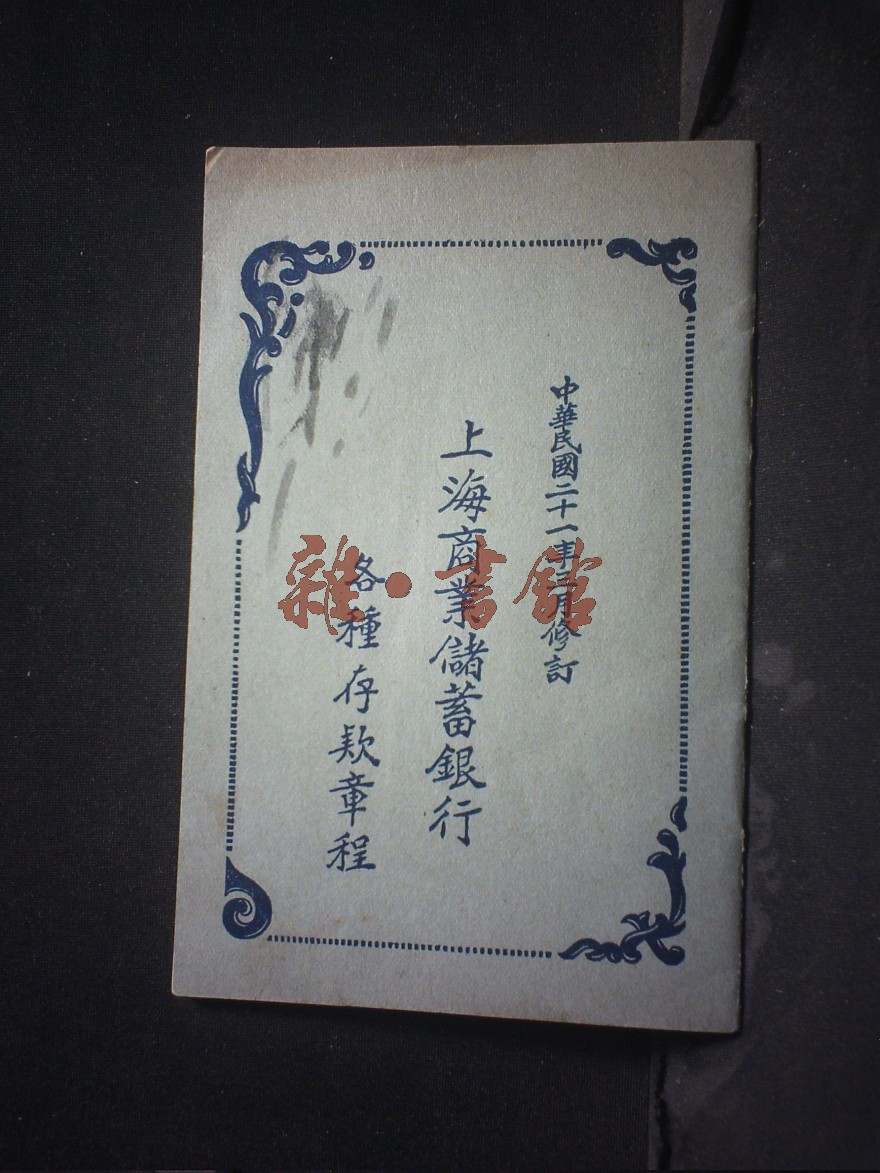 中華民國二十一年三月修訂
上海商業儲蓄銀行
各種存欵章程
雜·書館